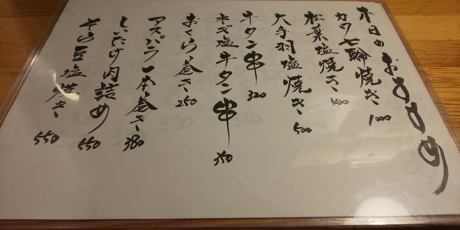 本日のおすすめ
カワ七輪焼き 1000
松葉塩焼き 400
大手羽塩焼き 500
牛タン串 320
ネギ塩牛タン串 350
おくら巻き 250
アスパラ一本巻き 380
しいたけ肉詰め 550
そら豆塩焼き 550